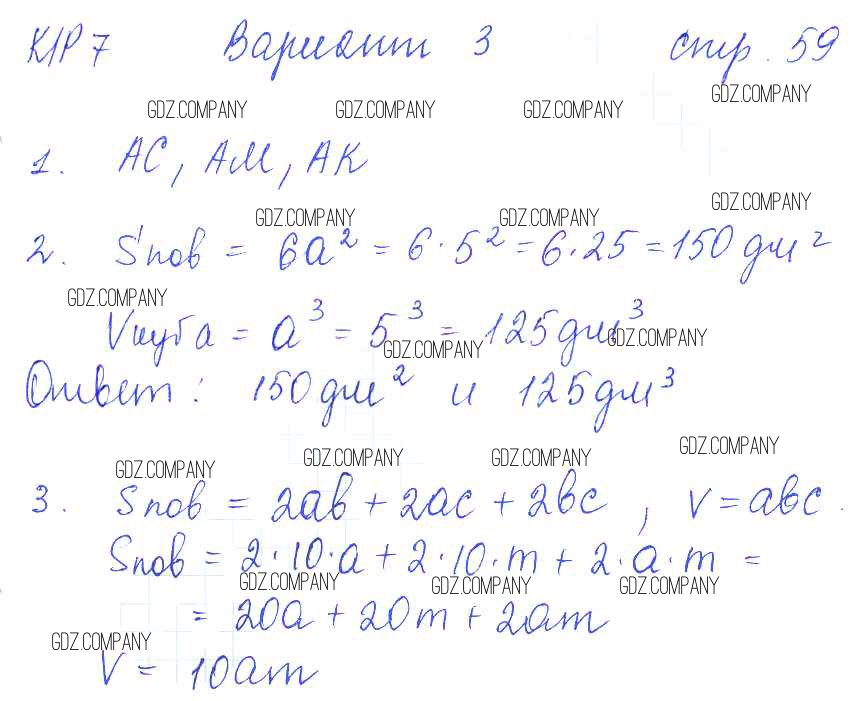 К/Р 7 Вариант 3 стр. 59
GDZ.COMPANY
GDZ.COMPANY GDZ.COMPANY GDZ.COMPANY
1. АС, АМ, АК
GDZ.COMPANY
GDZ.COMPANY GDZ.COMPANY
2. Sпов = 6a² = 6·5² = 6·25 = 150 дм²
GDZ.COMPANY
Vкуба = a³ = 5³ = 125 дм³
GDZ.COMPANY GDZ.COMPANY
Ответ: 150 дм² и 125 дм³
GDZ.COMPANY
GDZ.COMPANY GDZ.COMPANY GDZ.COMPANY
3. Sпов = 2ab + 2ac + 2bc, V = abc.
Sпов = 2·10·a + 2·10·m + 2·a·m =
GDZ.COMPANY GDZ.COMPANY GDZ.COMPANY
= 20a + 20m + 2am
GDZ.COMPANY
V = 10am